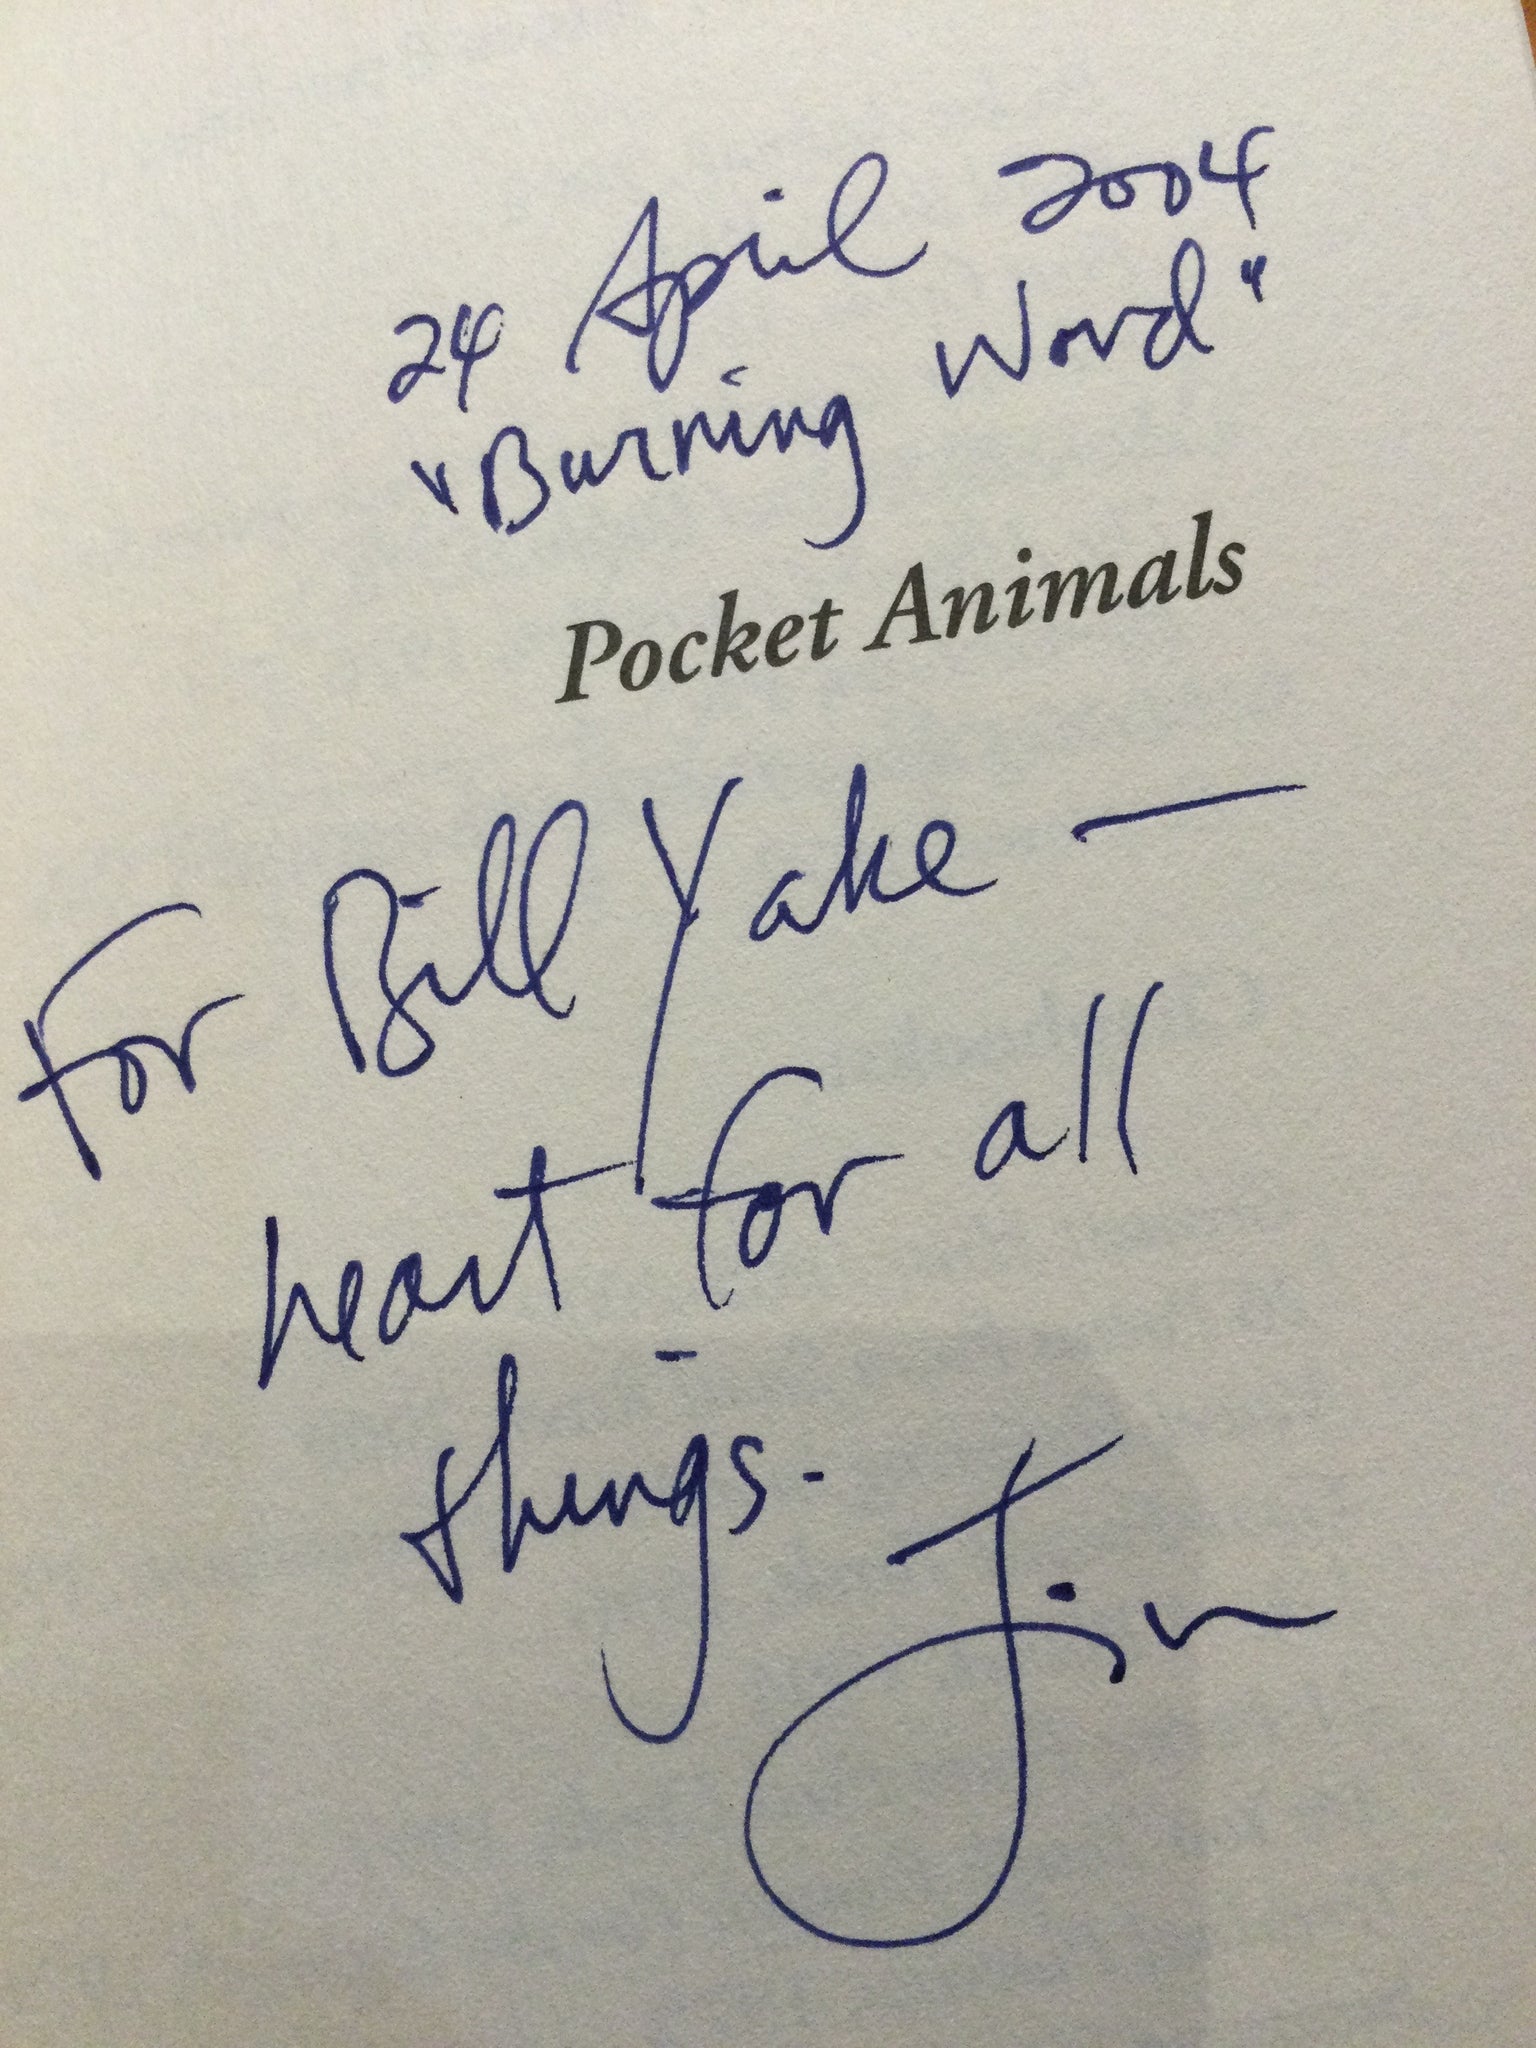 24 April 2004
"Burning Word"
Pocket Animals
For Bill Yake —
heart for all
things.
Jim